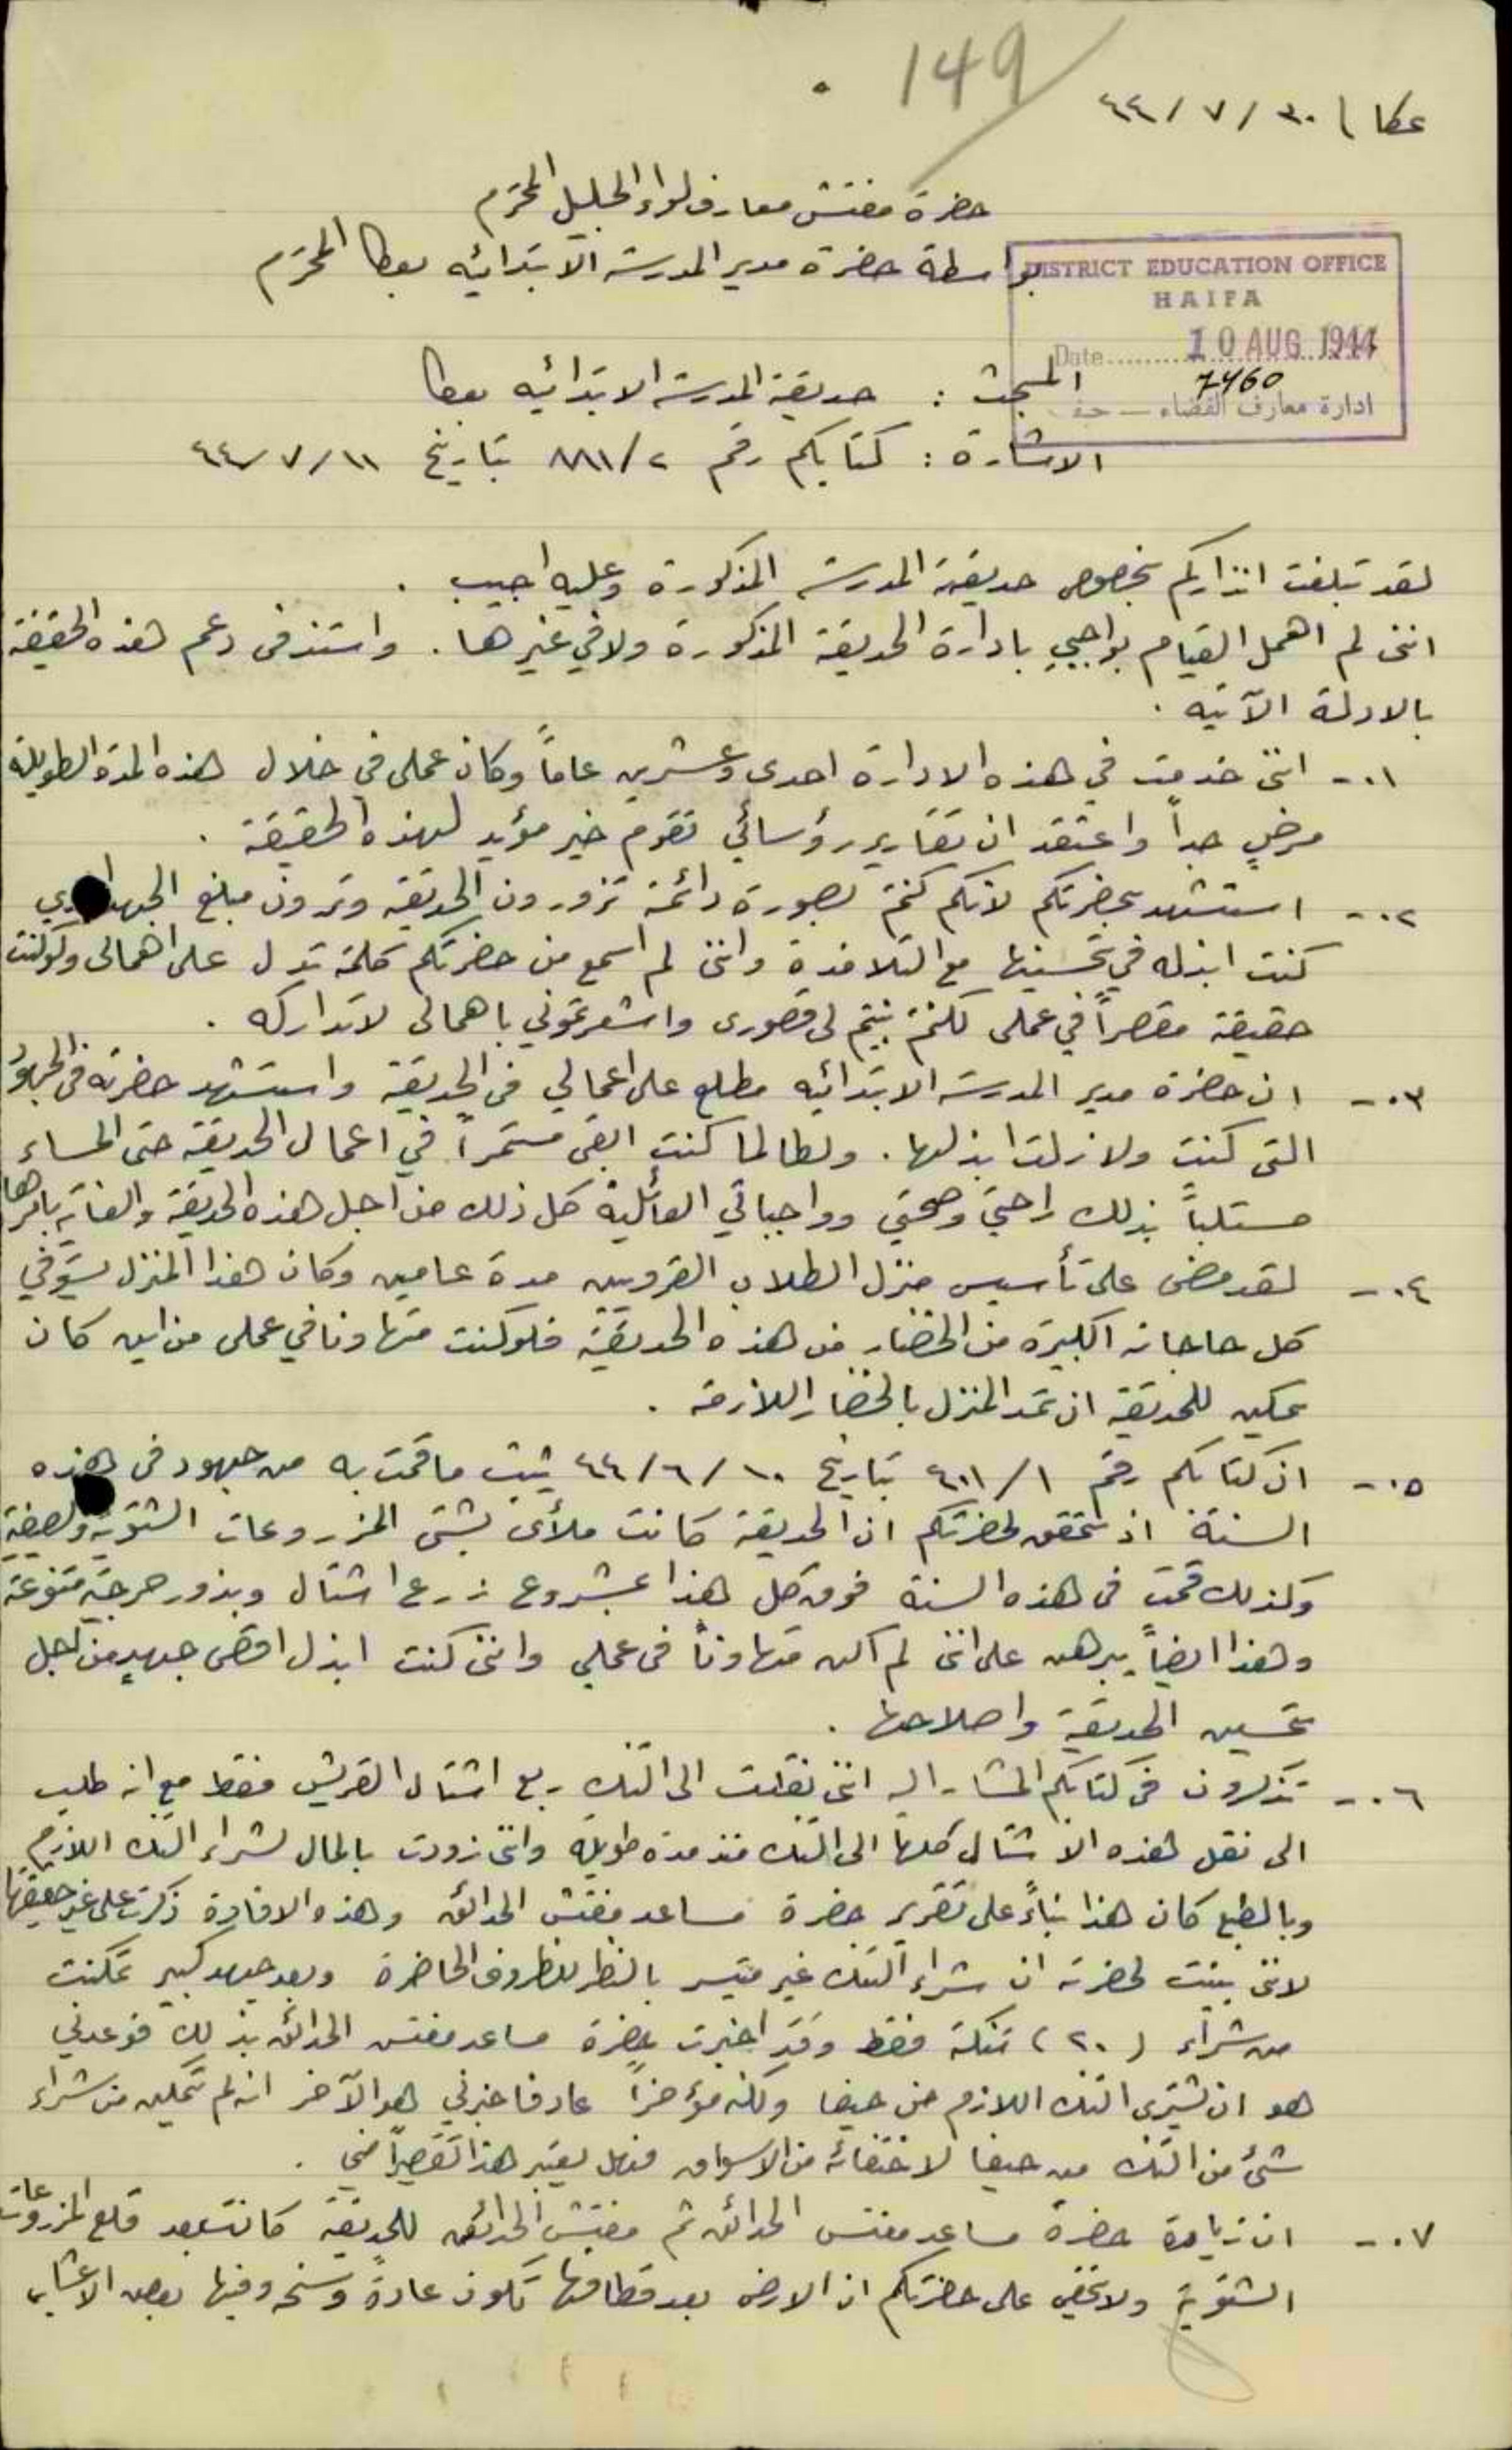 149
عكا / ٣٠ / ٧ / ٤٤
حضرة مفتش معارف لواء الجليل المحترم
بواسطة حضرة مدير المدرسة الابتدائيه بعكا المحترم
DISTRICT EDUCATION OFFICE
HAIFA
Date 10 AUG 1944
7460
ادارة معارف القضاء — حيفا
المبحث : حديقة المدرسة الابتدائيه بعكا
الاشارة : كتابكم رقم ٢/ ٨٨١ بتاريخ ١١ /٧ /٤٤
لقد تبلغت انذاركم بخصوص حديقة المدرسة المذكورة وعليه اجيب .
انني لم اهمل القيام بواجبي بادارة الحديقة المذكورة ولا في غيرها . واستند في دعم هذه الحقيقة
بالادلة الآتيه .
٠١- انني خدمت في هذه الادارة احدى وعشرين عاماً وكان عملي في خلال هذه المدة الطويلة
مرضٍ جداً واعتقد ان تقارير رؤسائي تقوم خير مؤيد لهذه الحقيقة .
٠٢- استشهد بحضرتكم لانكم كنتم بصورة دائمة تزورون الحديقة وترون مبلغ الجهد الذي
كنت ابذله في تحسينها مع التلامذة وانني لم اسمع من حضرتكم كلمة تدل على اهمالي ولو كنت
حقيقة مقصراً في عملي لكنتم بينتم لي قصوري واشعرتموني باهمالي لاتداركه .
٠٣- ان حضرة مدير المدرسة الابتدائيه مطلع على اعمالي في الحديقة واستشهد حضرته في الجهود
التي كنت ولا زلت ابذلها . ولطالما كنت ابقى مستمراً في اعمال الحديقة حتى المساء
مستلباً بذلك راحتي وصحتي وواجباتي العائلية كل ذلك من اجل هذه الحديقة والعناية بامرها
٠٤- لقد مضى على تأسيس منزل الطلاب القرويين مدة عامين وكان هذا المنزل يستوفي
كل حاجاته الكبيرة من الخضار من هذه الحديقة فلو كنت متهاونا في عملي من اين كان
يمكن للحديقة ان تمد المنزل بالخضار اللازمة .
٠٥- ان كتابكم رقم ١/ ٤٠١ بتاريخ ١٠ / ٦ / ٤٤ يثبت ما قمت به من جهود في هذه
السنة اذ تحقق لحضرتكم ان الحديقة كانت ملأى بشتى المزروعات الشتوية والصيفية
وكذلك قمت في هذه السنة فوق كل هذا بمشروع زرع اشتال وبذور حرجية متنوعة
وهذا ايضاً يبرهن على انني لم اكن متهاوناً في عملي وانني كنت ابذل اقصى جهدي من اجل
تحسين الحديقة واصلاحها .
٠٦- تذكرون في كتابكم المشار اليه انني نقلت الى التنك ربع اشتال القريش فقط مع انه طلب
الي نقل هذه الاشتال كلها الى التنك منذ مدة طويلة وانني زودت بالمال لشراء التنك اللازم
وبالطبع كان هذا بناءً على تقرير حضرة مساعد مفتش الحدائق وهذه الافادة ذكرت على غير حقيقتها
لانني بينت لحضرته ان شراء التنك غير متيسر بالنظر للظروف الحاضرة وبعد جهد كبير تمكنت
من شراء (٢٠) تنكة فقط وقد اخبرت حضرة مساعد مفتش الحدائق بذلك فوعدني
هو ان يشتري التنك اللازم من حيفا ولكنه مؤخراً عاد فاخبرني هو الآخر انه لم يتمكن من شراء
شئ من التنك من حيفا لاختفائه من الاسواق فهل يعتبر هذا تقصيراً مني .
٠٧- ان زيارة حضرة مساعد مفتش الحدائق ثم مفتش الحدائق للحديقة كانت بعد قلع المزروعات
الشتوية ولا يخفى على حضرتكم ان الارض بعد قطافها تكون عادةً وسخه وفيها بعض الاعشاب